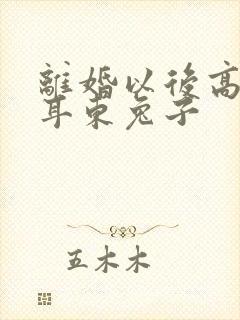 離婚以後高
耳東兔子
五木木